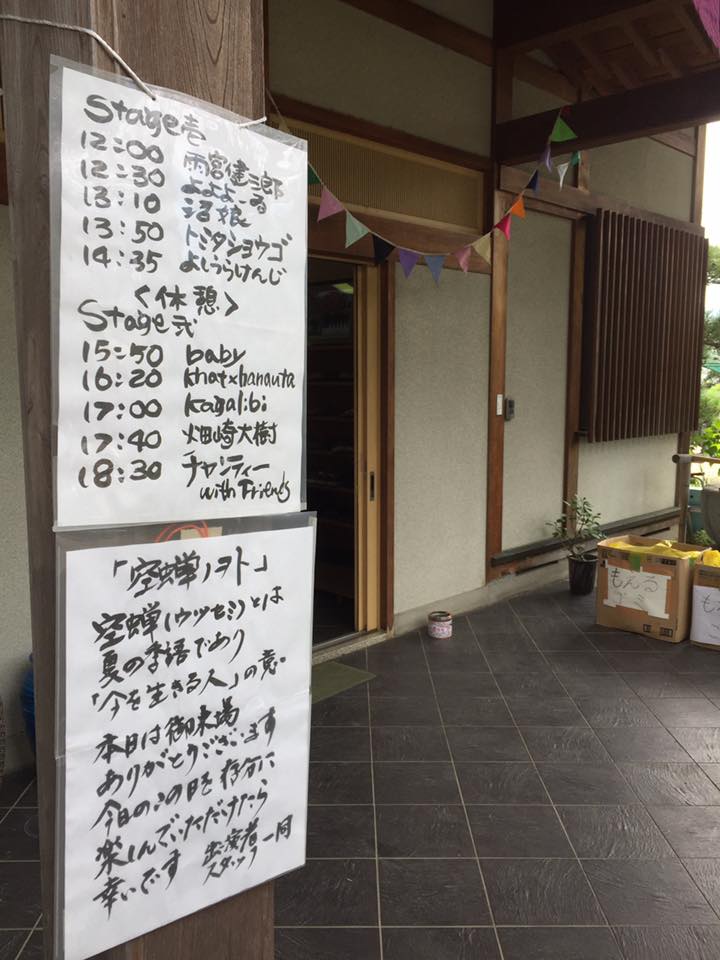 Stage壱
12:00 雨宮健三郎
12:30 よよよーる
13:10 沼娘
13:50 トミタショウゴ
14:35 よしうらけんじ
〈休憩〉
Stage弐
15:50 baby
16:20 khat×hanauta
17:00 kagalibi
17:40 畑崎大樹
18:30 チャンティー
with Friends
「空蝉ノヲト」
空蝉(ウツセミ)とは
夏の季語であり
「今を生きる人」の意。
本日は御来場
ありがとうございます
今日のこの日を存分に
楽しんでいただけたら
幸いです
出演者
スタッフ
一同
もんる
ゴミ
も